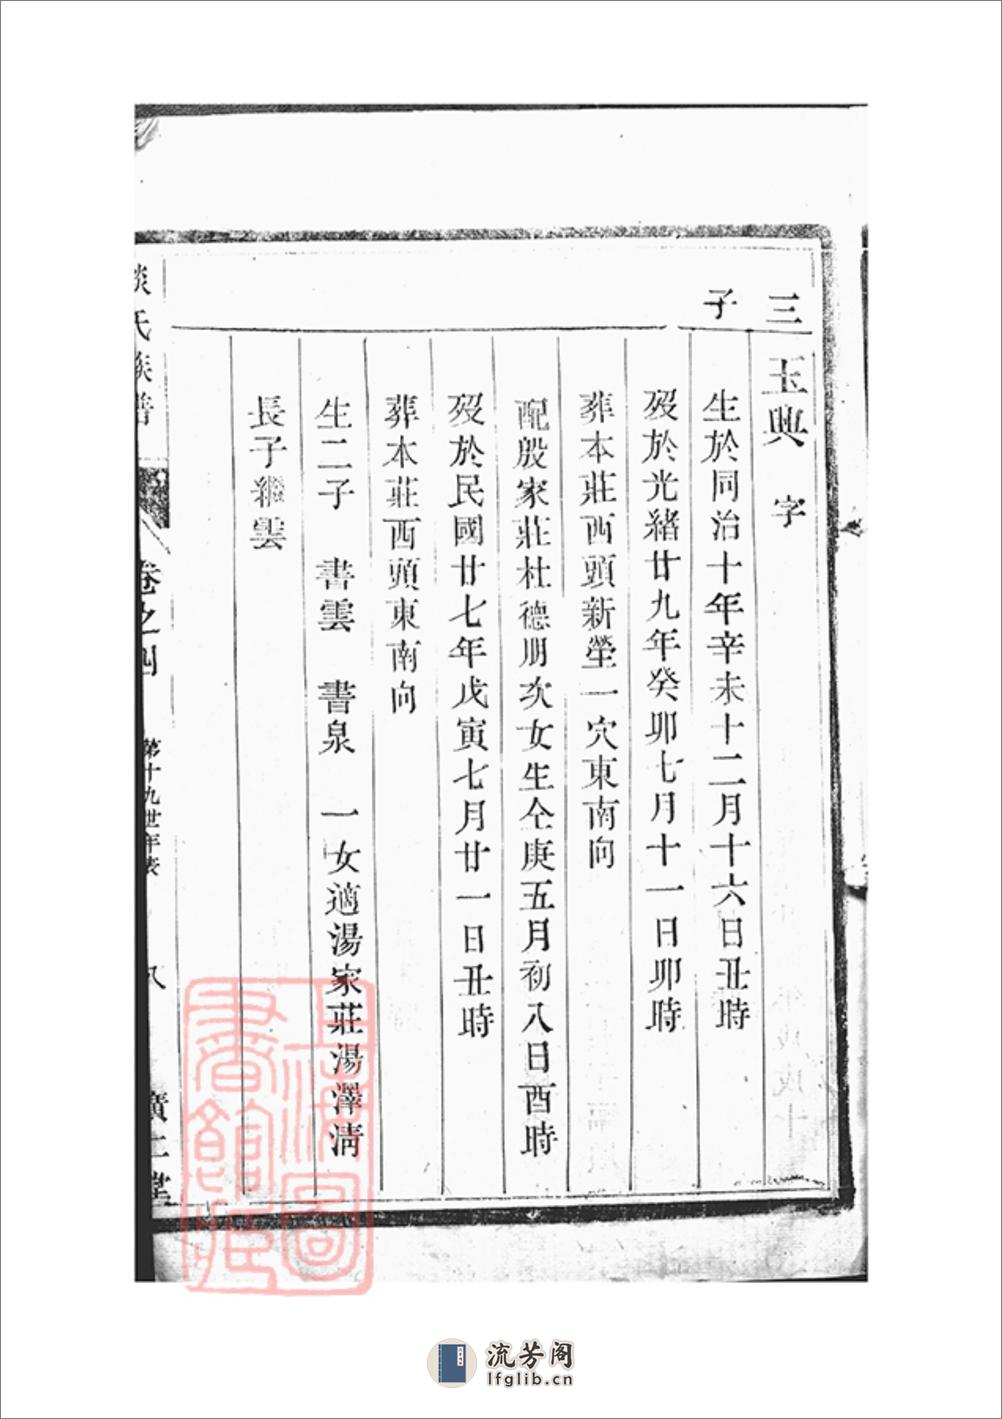 三子
玉典 字
生於同治十年辛未十二月十六日丑時
歿於光緒廿九年癸卯七月十一日卯時
葬本莊西頭新塋一穴東南向
配殷家莊杜德朋次女生仝庚五月初八日酉時
歿於民國廿七年戊寅七月廿一日丑時
葬本莊西頭東南向
生二子 書雲 書泉 一女適湯家莊湯澤清
長子繼雲
氏族譜
卷之四
第十九世年表
八
廣仁堂
上海圖書館藏
流芳阁
lfglib.cn